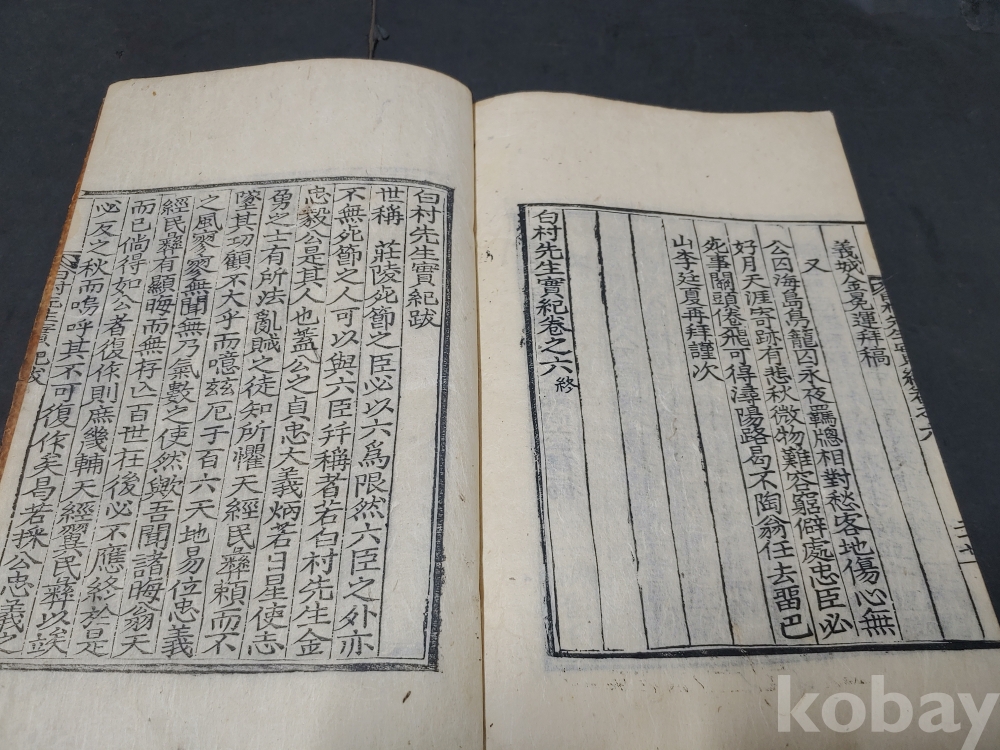 義城金冕運拜稿
又
公因海島鳥龍囚永夜羈牕相對愁客地傷心無
好月天涯寄跡有悲秋微物難容窮僻處忠臣必
死事關頭倦飛可得潯陽路曷不陶翁任去畱巴
山李廷夏再拜謹次
白村先生實紀卷之六 終
白村先生實紀跋
世稱 莊陵死節之臣必以六爲限然六臣之外亦
不無死節之人可以與六臣幷稱者若白村先生金
忠毅公是其人也蓋公之貞忠大義炳若日星使志
勇之士有所法亂賊之徒知所懼天經民彝賴而不
墜其功顧不大乎而噫玆厄于百六天地易位忠義
之風寥寥無聞無乃氣數之使然歟吾聞諸晦翁天
經民彝有顯晦而無存亡百世在後必不應終於是
而已倘得如公者復作則庶幾輔天經翼民彝以竢
必反之秋而嗚呼其不可復作矣曷若採公忠義之
kobay